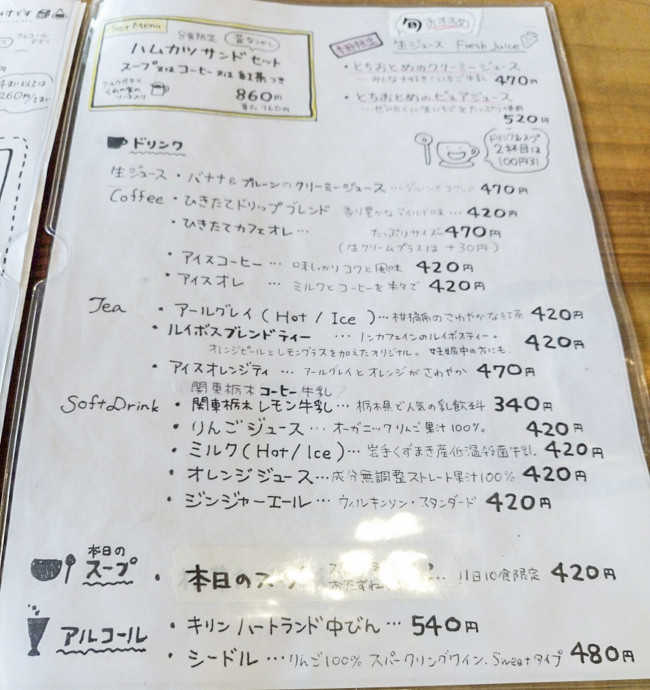 Set Menu
8食限定 昔なつかし
ハムカツサンドセット
スープ又はコーヒー又は紅茶つき
860円
旬 おすすめ
季節限定
生ジュース Fresh Juice!
・とちおとめのクリーミージュース
…みんな大好き!いちご牛乳 470円
・とちおとめのピュアジュース
…ぜいたくに生いちごをたっぷり使用
520円
ドリンク&スープ
2杯目は
100円引
ドリンク
生ジュース ・バナナ&プルーンのクリーミージュース … 470円
Coffee ・ひきたてドリップブレンド 香り豊かなマイルド味… 420円
・ひきたてカフェオレ… たっぷりサイズ 470円
(生クリームプラスは +30円)
・アイスコーヒー… 味しっかりコクと風味 420円
・アイスオレ … ミルクとコーヒーを半々で 420円
Tea ・アールグレイ (Hot / Ice)…柑橘系のさわやかな紅茶 420円
・ルイボスブレンドティー …ノンカフェインのルイボスティー。 420円
オレンジピールとレモングラスを加えたオリジナル。妊娠中の方にも
・アイスオレンジティ … アールグレイとオレンジがさわやか 470円
関東栃木コーヒー牛乳
Soft Drink ・関東栃木レモン牛乳…栃木県で人気の乳飲料 340円
・りんごジュース… オーガニックりんご果汁100%。 420円
・ミルク(Hot/Ice)…岩手くずまき産低温殺菌牛乳 420円
・オレンジジュース…成分無調整ストレート果汁100% 420円
・ジンジャーエール… ウィルキンソン・スタンダード 420円
本日の
スープ ・本日のスープ … 1日10食限定 420円
アルコール ・キリン ハートランド 中びん… 540円
・シードル …りんご100% スパークリングワイン、Sweetタイプ 480円